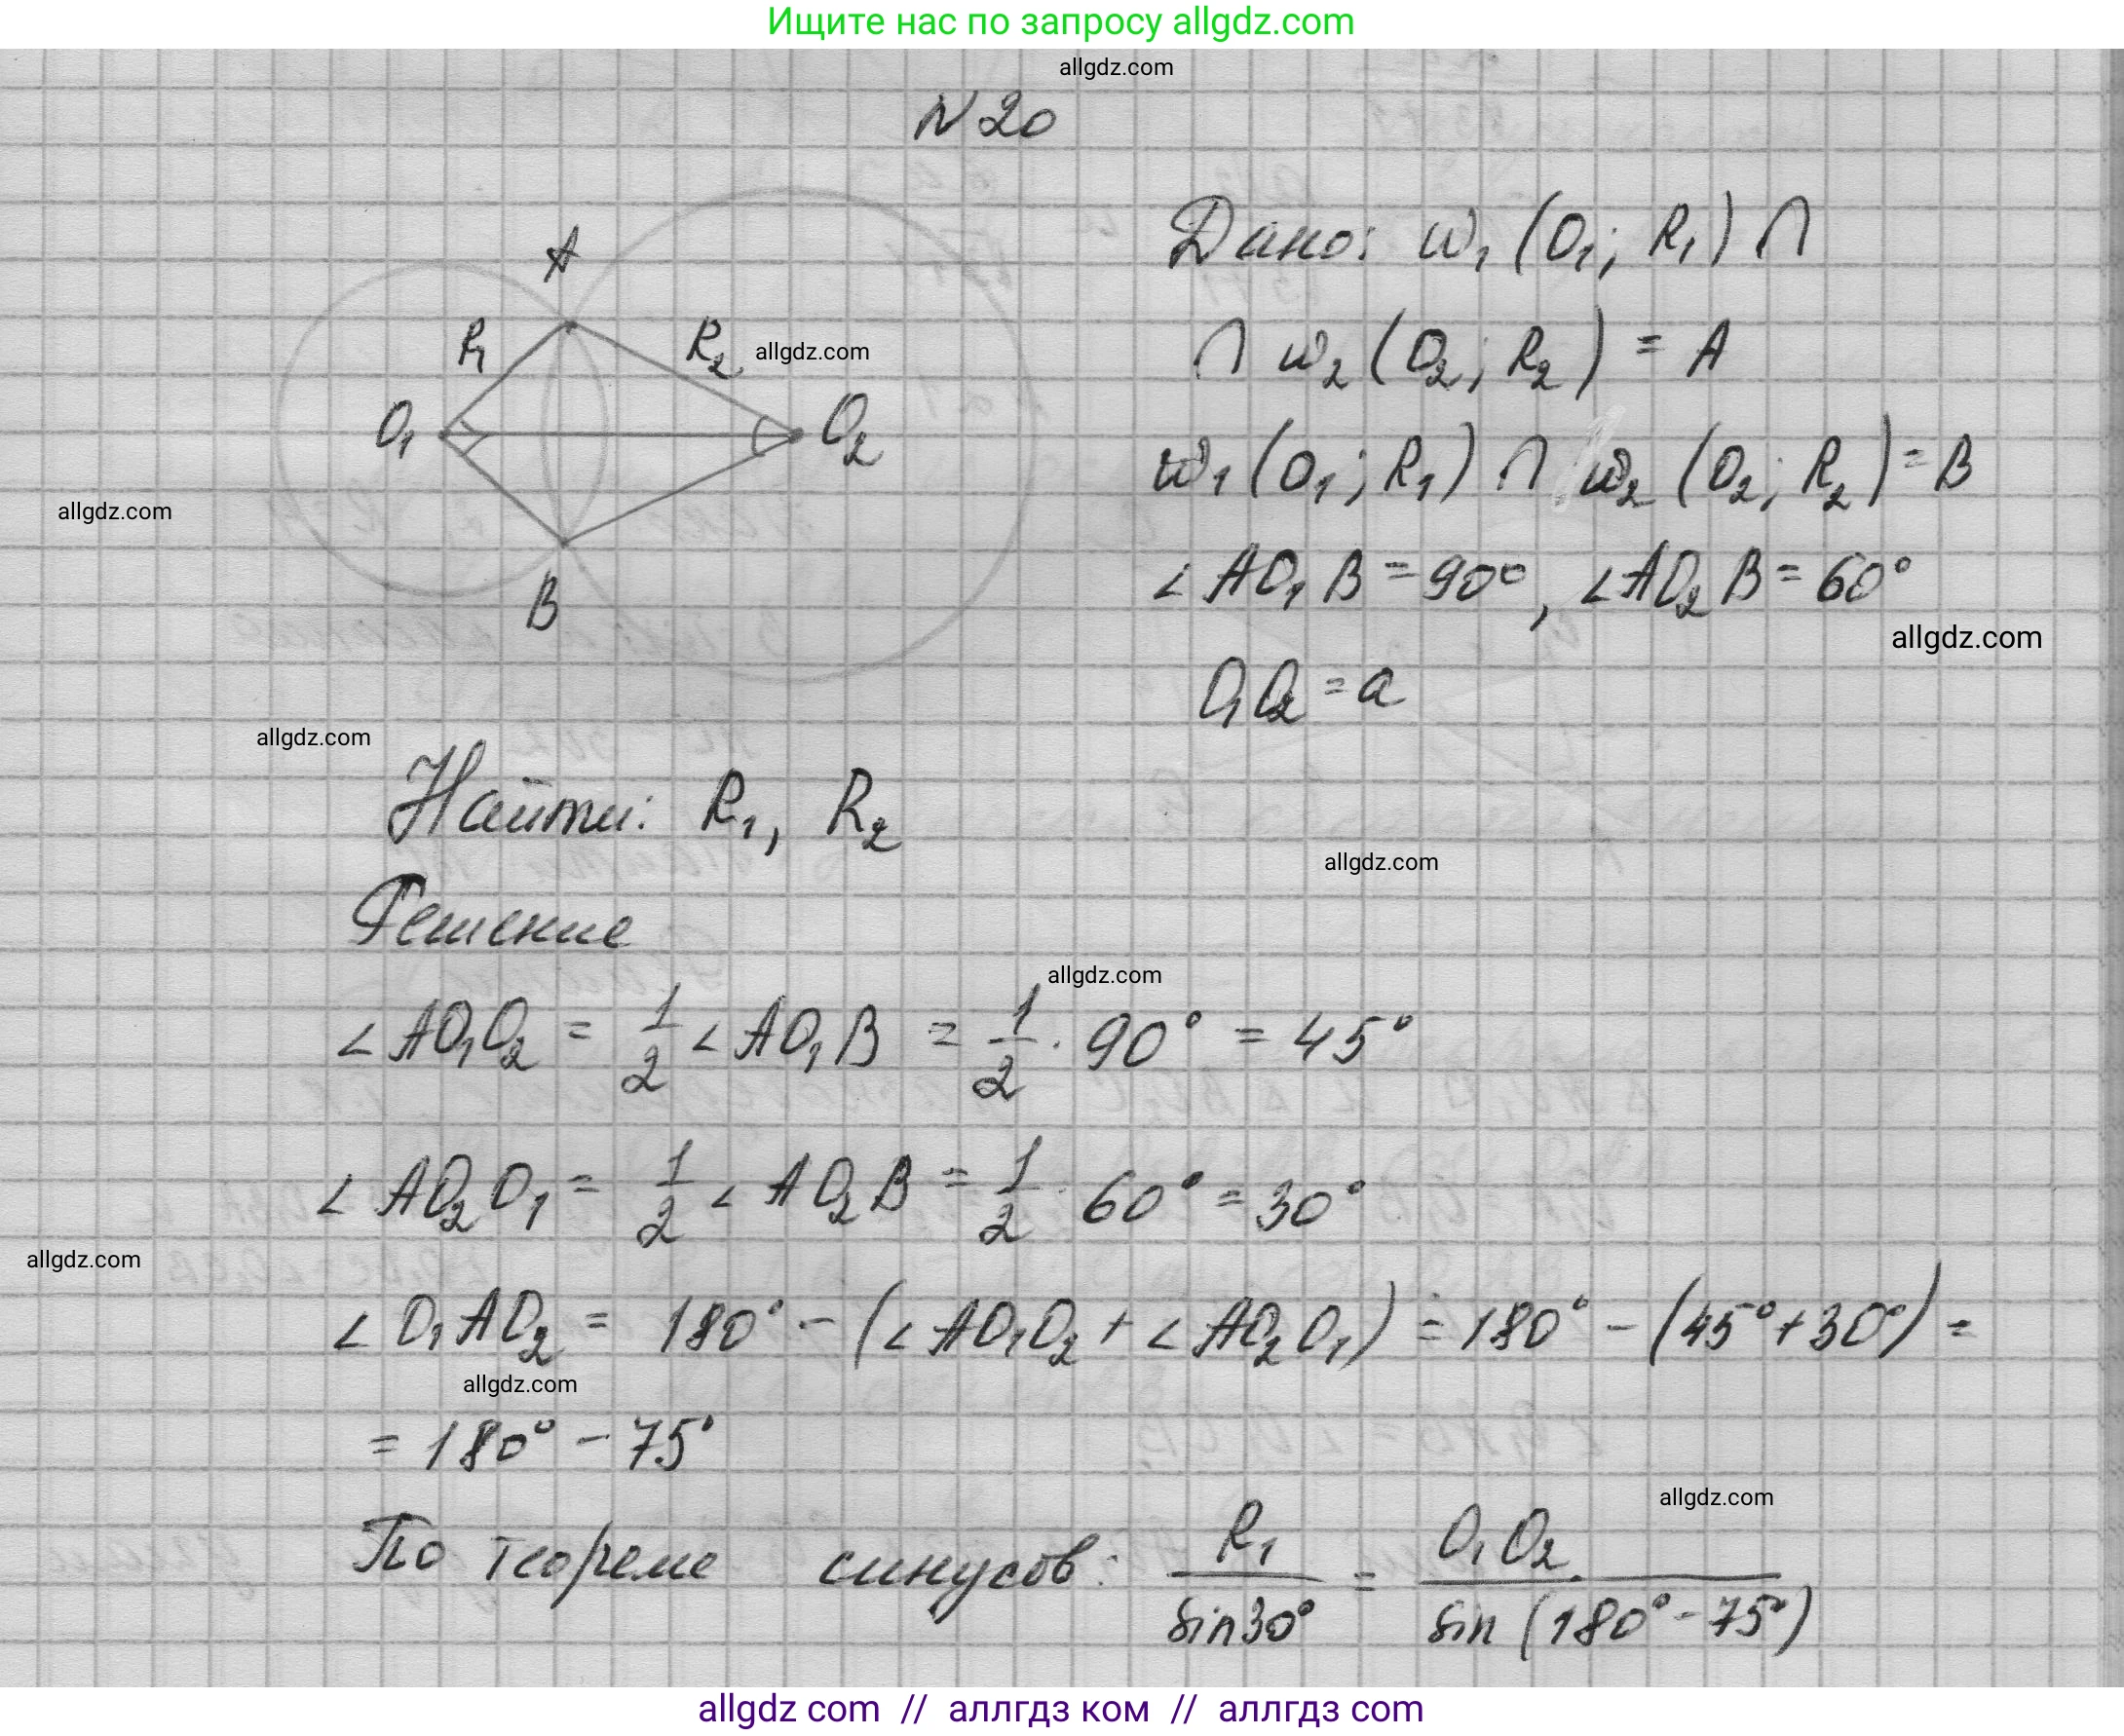 Ищите нас по запросу allgdz.com
allgdz.com
N 20
A
R₁
R₂
allgdz.com
O₁
O₂
allgdz.com
B
Дано: w₁ (O₁; R₁) ∩
∩ w₂ (O₂; R₂) = A
w₁ (O₁; R₁) ∩ w₂ (O₂; R₂) = B
∠AO₁B = 90°, ∠AO₂B = 60°
allgdz.com
O₁O₂ = a
allgdz.com
Найти: R₁, R₂
allgdz.com
Решение
allgdz.com
∠AO₁O₂ = 1/2 ∠AO₁B = 1/2 · 90° = 45°
∠AO₂O₁ = 1/2 ∠AO₂B = 1/2 · 60° = 30°
allgdz.com
∠O₁AO₂ = 180° - (∠AO₁O₂ + ∠AO₂O₁) = 180° - (45° + 30°) =
allgdz.com
= 180° - 75°
allgdz.com
По теореме синусов: R₁/sin30° = O₁O₂/sin(180° - 75°)
allgdz com // аллгдз ком // аллгдз com